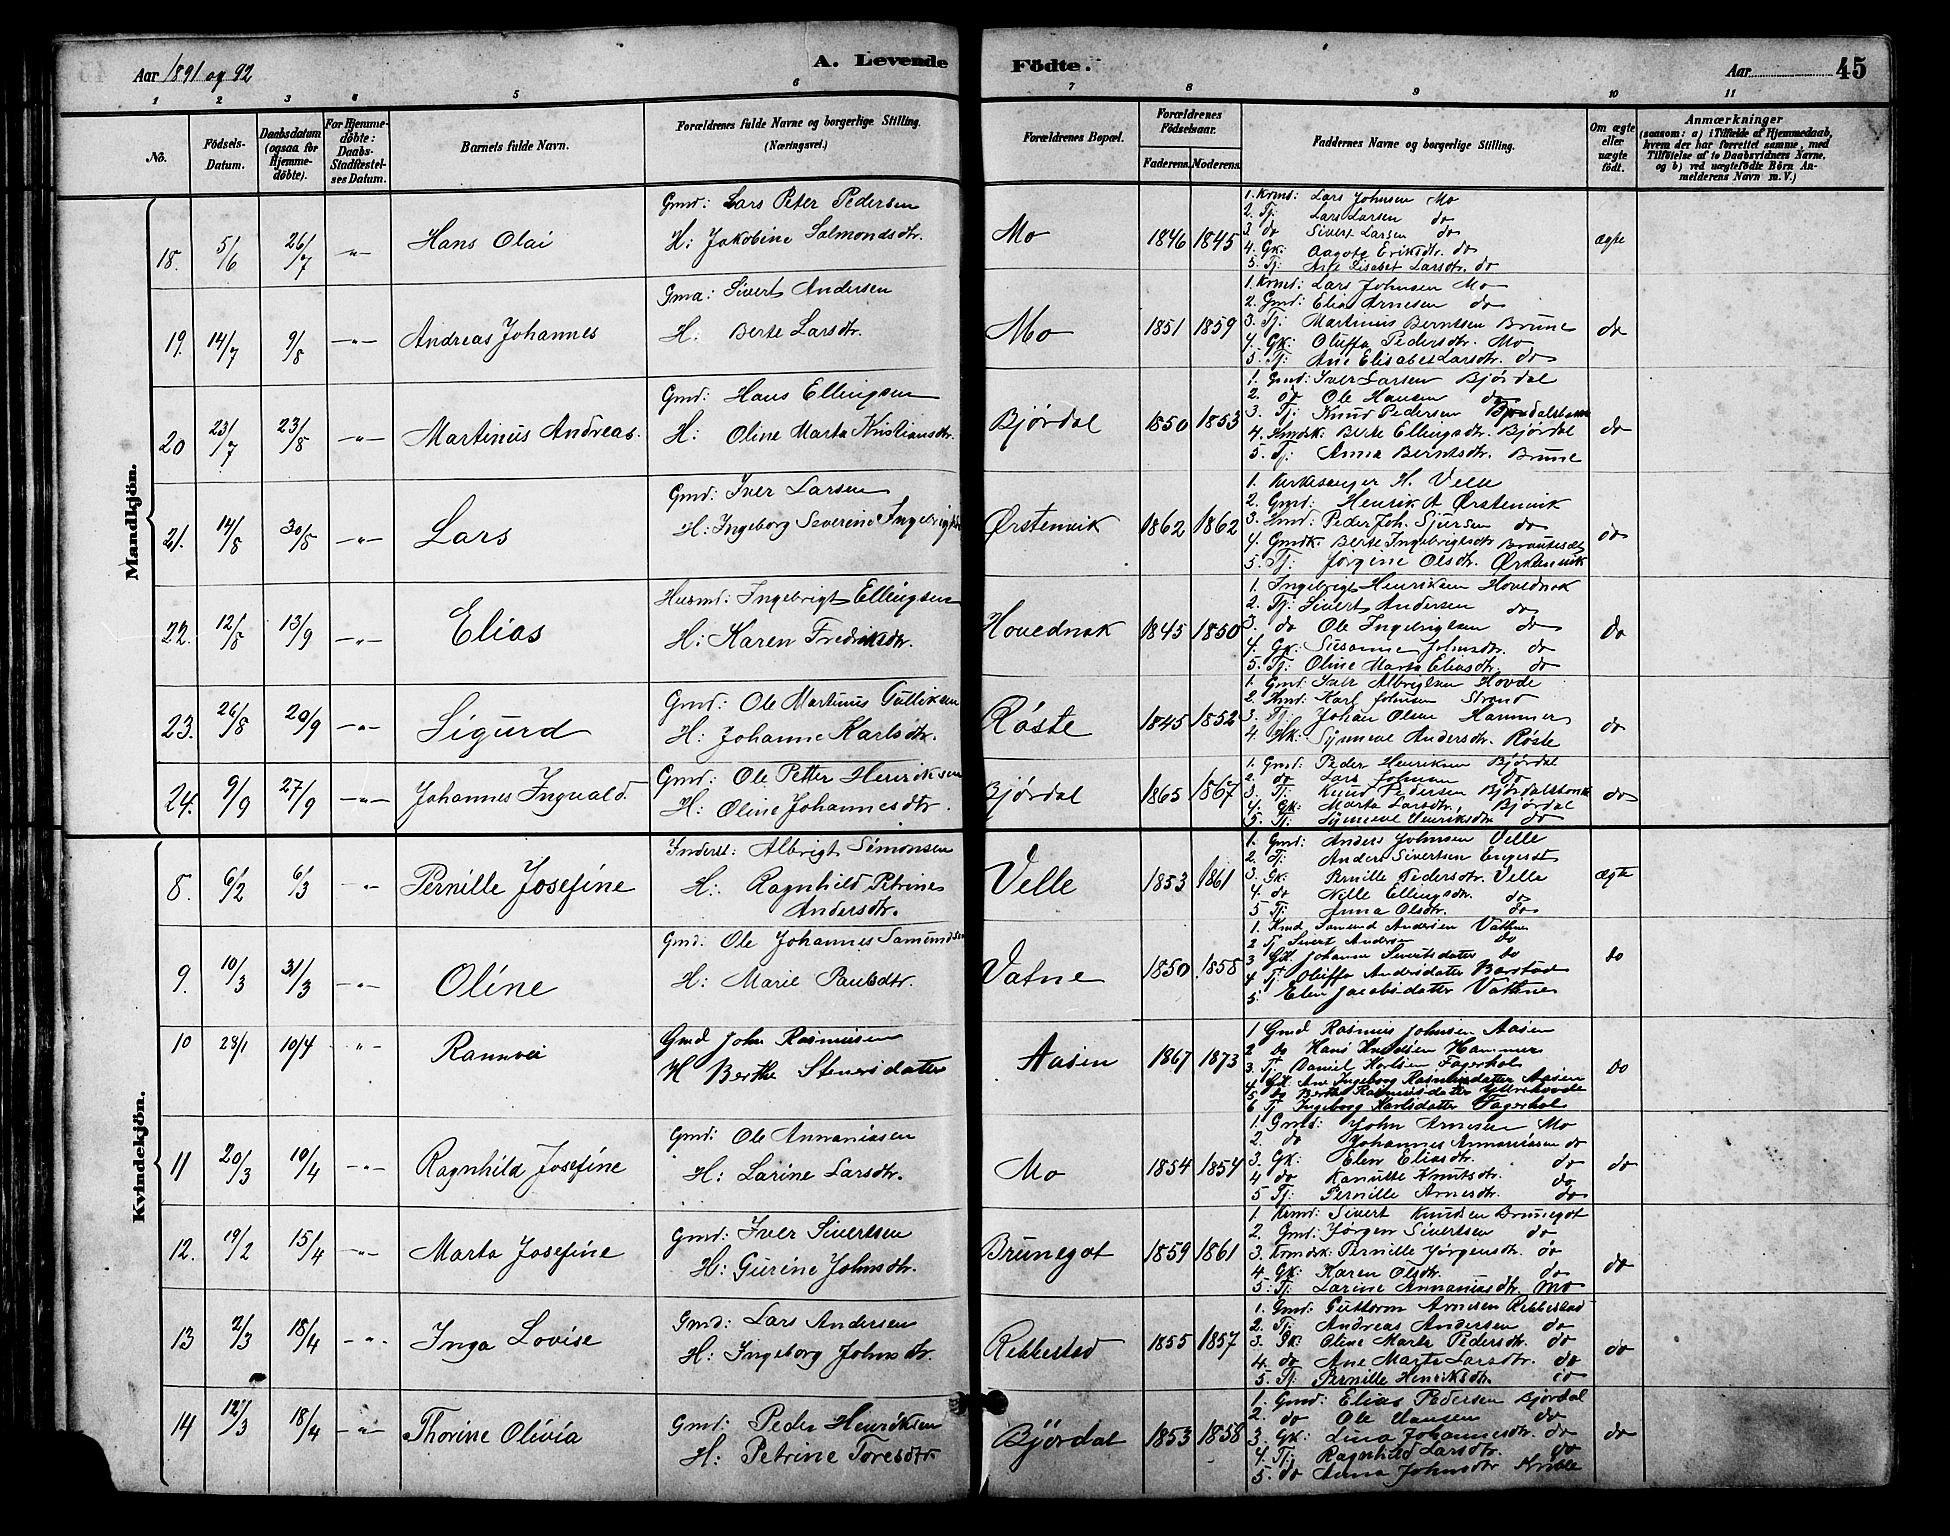 Aar 1891 og 92
A. Levende Födte.
Aar 45
1 2 3 4 5 6 7 8 9 10 11
No.
Födsels-Datum.
Daabsdatum (ogsaa for Hjemme-döbte).
For Hjemme-döbte: Daabs-Stadfæstel-ses Datum.
Barnets fulde Navn.
Forældrenes fulde Navne og borgerlige Stilling. (Næringsvei.)
Forældrenes Bopæl.
Forældrenes Födselsaar.
Faderens. Moderens.
Faddernes Navne og borgerlige Stilling.
Om ægte eller uægte födt.
Anmærkninger
(saasom: a) i Tilfælde af Hjemmedaab, hvem der har forrettet samme, med Tilföielse af to Daabsvidners Navne, og b) ved uægtefödte Börn An-melderens Navn m. V.)
Mandkjön.
18. 5/6 26/7 -"- Hans Olai
Gmd: Lars Peter Pedersen
H: Jakobine Salmondsdtr.
Mo 1846 1845
1. Krmd: Lars Johnsen Mo
2. Tj: Lars Larsen do
3. do Sivert Larsen do
4. Gk: Aagote Eriksdtr. do
5. Tj: Ane Lisabet Larsdtr. do
ægte
19. 14/7 9/8 -"- Andreas Johannes
Gma: Sivert Andersen
H: Berte Larsdtr.
Mo 1851 1859
1. Krmd: Lars Johnsen Mo
2. Gmd: Elias Arnesen do
3. Tj: Martinus Berntsen Brune
4. Gk: Oluffa Pedersdtr. Mo
5. Tj: Ane Elisabet Larsdtr. do
do
20 23/7 23/8 -"- Martinus Andreas.
Gmd: Hans Ellingsen
H: Oline Marta Kristiansdtr.
Bjørdal 1850 1853
1. Gmd: Iver Larsen Bjørdal
2. do Ole Hansen do
3. Tj: Knud Pedersen
4. Berte Ellingsdtr. Bjørdal
5. Tj: Anna Berntsdtr. Brune
do
21. 14/8 30/8 -"- Lars
Gmd: Iver Larsen
H: Ingeborg Severine
Ørstenvik 1862 1862
1. Kirkesanger H. Velle
2. Gmd: Henrik A Ørstenvik
3. Hmd: Peder Joh. Sjursen do
4. Gmdk. Berte Ingebrigtsdtr
5. Tj: Jørgine Olsdtr. Ørstenvik
do
22. 12/8 13/9 -"- Elias
Husmd: Ingebrigt Ellingsen
H: Karen Fredriksdtr.
Hovednak 1845 1850
1. Ingebrigt Henriksen Hovednak
2. Tj: Sivert Andersen do
3. do Ole Ingebrigtsen do
4. Gk: Susanne Johnsdtr. do
5. Tj: Oline Marta Eliasdtr. do
do
23. 26/8 20/9 -"- Sigurd
Gmd: Ole Martinus Gulliksen
H: Johanne Karlsdtr.
Røste 1845 1852
1. Gmd: Iver Albrigtsen Hovde
2. Hmd: Karl Johnsen Strand
3. Tj: Johan Olsen Hammer
4. Hk: Synneve Andersdtr. Røste
do
24. 9/9 27/9 -"- Johannes Ingvald.
Gmd: Ole Petter Henriksen
H: Oline Johannesdtr.
Bjørdal 1865 1867
1. Gmd: Peder Henriksen Bjørdal
2. do Lars Johnsen do
3. Tj: Knud Pedersen
4. Gk: Marta Larsdtr. Bjørdal
5. Tj: Synneve Henriksdtr. do
do
Kvindekjön.
8. 6/2 6/3 -"- Pernille Josefine
Inderst: Albrigt Simonsen
H: Ragnhild Petrine
Andersdtr.
Velle 1853 1861
1. Gmd: Anders Johnsen Velle
2. Tj: Anders Sivertsen Engeset
3. Gk: Pernille Pedersdtr. Velle
4. do Nille Ellingsdtr. do
5. Tj: Anna Olsdtr. do
ægte
9. 10/3 31/3 -"- Oline
Gmd. Ole Johannes Samundsen
H: Marie Paulsdtr.
Vatne 1850 1858
1. Kmd Samund Andersen Vathne
2 Tj Sivert Andersen do
3 Gk Johanne Sivertsdatter do
4 Tj Oluffa Andersdatter Barstad
5 Elen Jacobsdatter Vathne
do
10 28/1 10/4 " Rannvei
Gmd John Rasmussen
H Berthe Stenersdatter
Aasen 1867 1873
1 Gmd Rasmus Johnsen Aasen
2 do Hans Knudsen Hammer
3. Tj Daniel Karlsen Fagerhol
4. Gk. Ane Ingeborg Rasmusdatter Aasen
5 do Berthe Rasmusdatter Ytrehovde
6 Tj Ingeborg Karlsdatter Fagerhol
do
11 20/3 10/4 -"- Ragnhild Josefine
Gmd: Ole Annaniasen
H: Larine Larsdtr.
Mo 1854 1854
1. Gmd: John Arnesen Mo
2. do Johannes Annaniasen do
3. Gk: Elen Eliasdtr. do
4 do Kanutte Knutsdtr. do
5 Tj: Pernille Arnesdtr. do
do
12. 19/2 15/4 -"- Marta Josefine
Gmd: Iver Sivertsen
H: Gurine Johnsdtr.
Brunegot 1859 1861
1. Krmd: Sivert Knudsen Brunegot
2. Gmd: Jørgen Sivertsen do
3. Krmdk: Pernille Jørgensdtr. do
4 Gk: Karen Olsdtr. do
5. Tj: Larine Annaniasdtr. Mo
do
13 2/3 18/4 -"- Inga Lovise
Gmd: Lars Andersen
H: Ingeborg Johnsdtr.
Rebbestad 1855 1857
1. Gmd: Guttorm Arnesen Rebbestad
2. Tj: Andreas Andersen do
3. Gk: Oline Marte Pedersdtr. do
4. do Ane Marta Larsdtr. do
5. Tj: Pernille Henriksdtr. do
do
14 12/3 18/4 -"- Thorine Olivia
Gmd: Peder Henriksen
H: Petrine Toresdtr.
Bjørdal 1853 1858
1. Gmd: Elias Pedersen Bjørdal
2. do Ole Hansen do
3. Gk: Lina Johannesdtr. do
4. Tj: Ragnhild Larsdtr. do
5. do Anna Johnsdtr
do